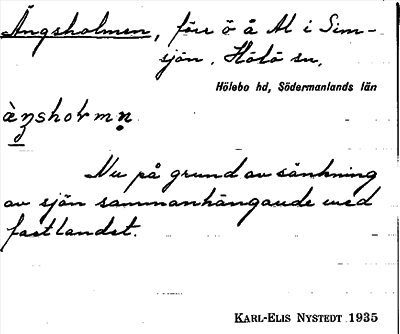 Ängsholmen, förr ö å Al i Sim-
sjön. Hölö sn,
Hölebo hd, Södermanlands län
àŋshoɫmn̥
Nu på grund av sänkning
av sjön sammanhängande med
fastlandet.
KARL-ELIS NYSTEDT 1935